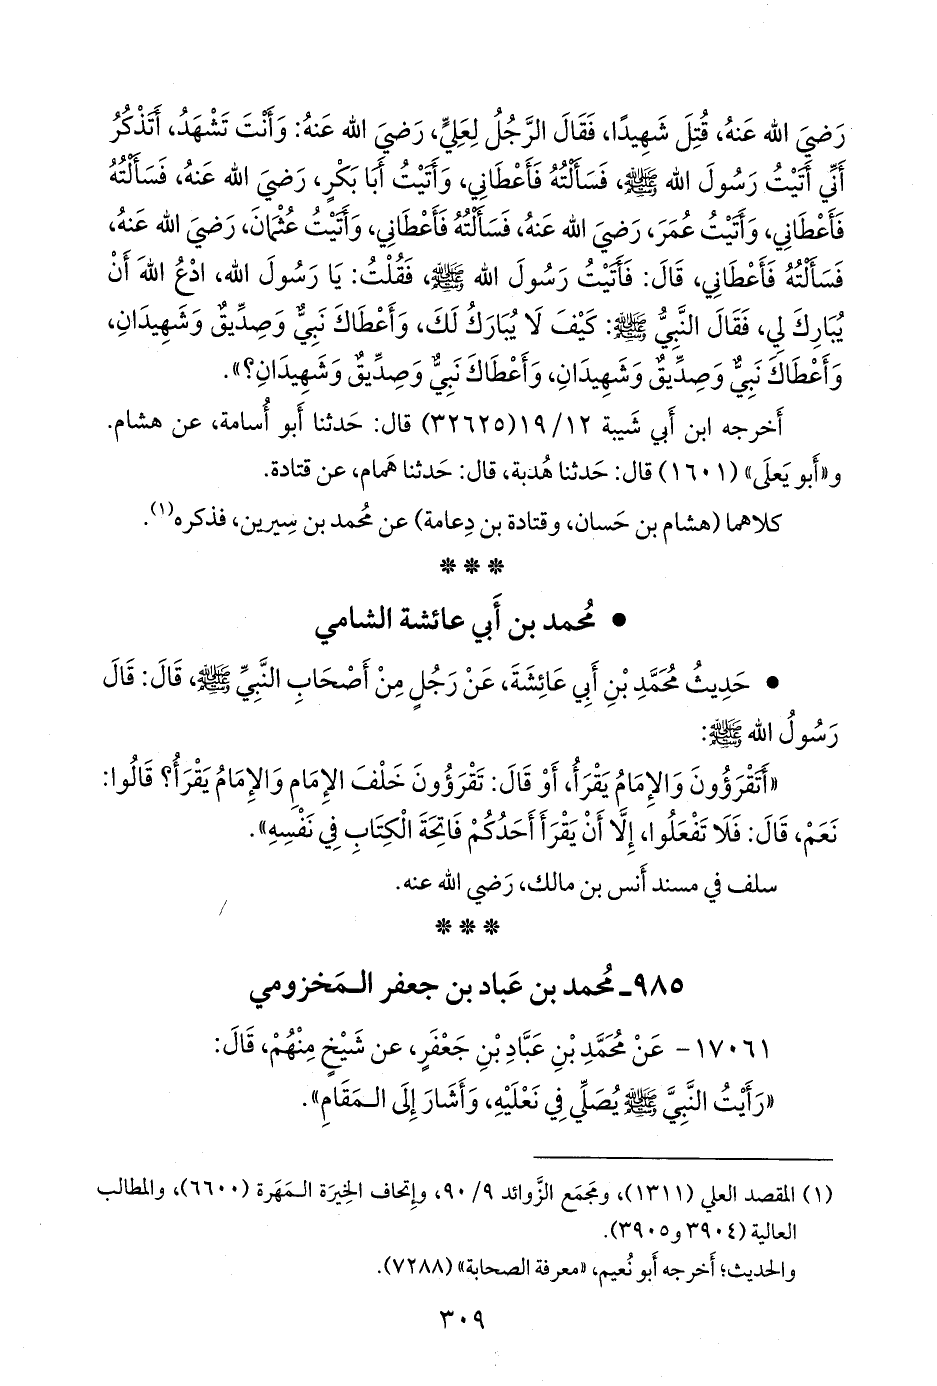 رَضيَ الله عَنهُ، قُتِلَ شَهِيدًا، فَقَالَ الرَّجُلُ لِعَلِيٍّ، رَضيَ الله عَنهُ: وَأَنْتَ تَشْهَدُ، أَتَذْكُرُ
أَنِّي أَتَيْتُ رَسُولَ الله ﷺ، فَسَأَلْتُهُ فَأَعْطَانِي، وَأَتَيْتُ أَبَا بَكْرٍ، رَضيَ الله عَنهُ، فَسَأَلْتُهُ
فَأَعْطَانِي، وَأَتَيْتُ عُمَرَ، رَضيَ الله عَنهُ، فَسَأَلْتُهُ فَأَعْطَانِي، وَأَتَيْتُ عُثْمَانَ، رَضيَ الله عَنهُ،
فَسَأَلْتُهُ فَأَعْطَانِي، قَالَ: فَأَتَيْتُ رَسُولَ الله ﷺ، فَقُلْتُ: يَا رَسُولَ الله، ادْعُ اللهَ أَنْ
يُبَارِكَ لِي، فَقَالَ النَّبِيُّ ﷺ: كَيْفَ لَا يُبَارَكُ لَكَ، وَأَعْطَاكَ نَبِيٌّ وَصِدِّيقٌ وَشَهِيدَانِ،
وَأَعْطَاكَ نَبِيٌّ وَصِدِّيقٌ وَشَهِيدَانِ، وَأَعْطَاكَ نَبِيٌّ وَصِدِّيقٌ وَشَهِيدَانِ؟».
أَخرجه ابن أَبي شَيبة ١٢/ ١٩(٣٢٦٢٥) قال: حَدثنا أَبو أُسامة، عن هشام.
و«أَبو يَعلَى» (١٦٠١) قال: حَدثنا هُدبة، قال: حَدثنا هَمام، عن قتادة.
كلاهما (هشام بن حَسان، وقتادة بن دِعامة) عن مُحمد بن سِيرين، فذكره(١).
* * *
• مُحمد بن أَبي عائشة الشامي
• حَدِيثُ مُحَمَّدِ بْنِ أَبِي عَائِشَةَ، عَنْ رَجُلٍ مِنْ أَصْحَابِ النَّبِيِّ ﷺ، قَالَ: قَالَ
رَسُولُ الله ﷺ:
«أَتَقْرَؤُونَ وَالإِمَامُ يَقْرَأُ، أَوْ قَالَ: تَقْرَؤُونَ خَلْفَ الإِمَامِ وَالإِمَامُ يَقْرَأُ؟ قَالُوا:
نَعَمْ، قَالَ: فَلَا تَفْعَلُوا، إِلَّا أَنْ يَقْرَأَ أَحَدُكُمْ فَاتِحَةَ الْكِتَابِ فِي نَفْسِهِ».
سلف في مسند أَنس بن مالك، رَضي الله عنه.
* * *
٩٨٥ـ مُحمد بن عَباد بن جعفر الـمَخزومي
١٧٠٦١- عَنْ مُحَمَّدِ بْنِ عَبَّادِ بْنِ جَعْفَرٍ، عن شَيْخٍ مِنْهُمْ، قَالَ:
«رَأَيْتُ النَّبِيَّ ﷺ يُصَلِّي فِي نَعْلَيْهِ، وَأَشَارَ إِلَى الـمَقَامِ».
(١) المقصد العلي (١٣١١)، ومَجمَع الزَّوائد ٩/ ٩٠، وإتحاف الخِيرَة الـمَهَرة (٦٦٠٠)، والمطالب
العالية (٣٩٠٤ و٣٩٠٥).
والحديث؛ أَخرجه أَبو نُعيم، «معرفة الصحابة» (٧٢٨٨).
٣٠٩